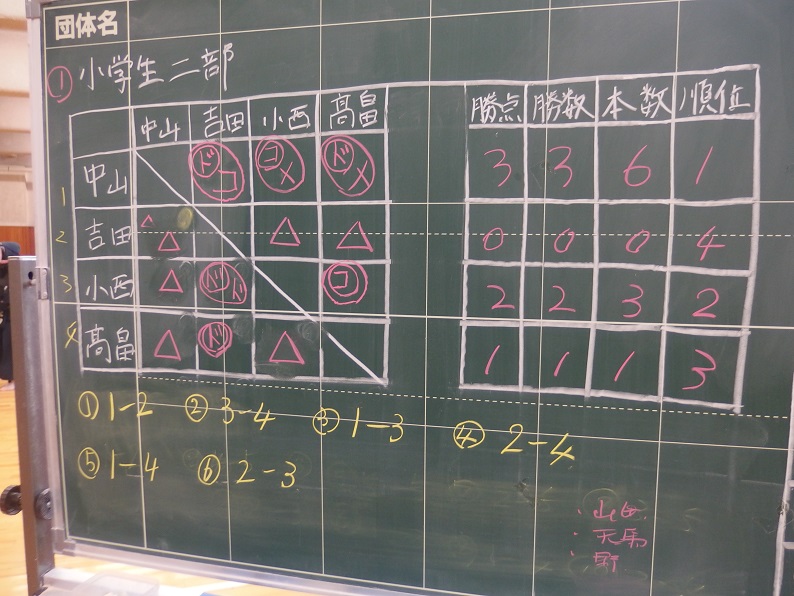 団体名
① 小学生二部
中山 吉田 小西 髙畠 勝点 勝数 本数 順位
1 中山 ドコ コメ ドメ 3 3 6 1
2 吉田 △ △ △ △ 0 0 0 4
3 小西 △ ドド コ 2 2 3 2
4 髙畠 △ ド △ 1 1 1 3
① 1-2 ② 3-4 ③ 1-3 ④ 2-4
⑤ 1-4 ⑥ 2-3
・山田
・天馬